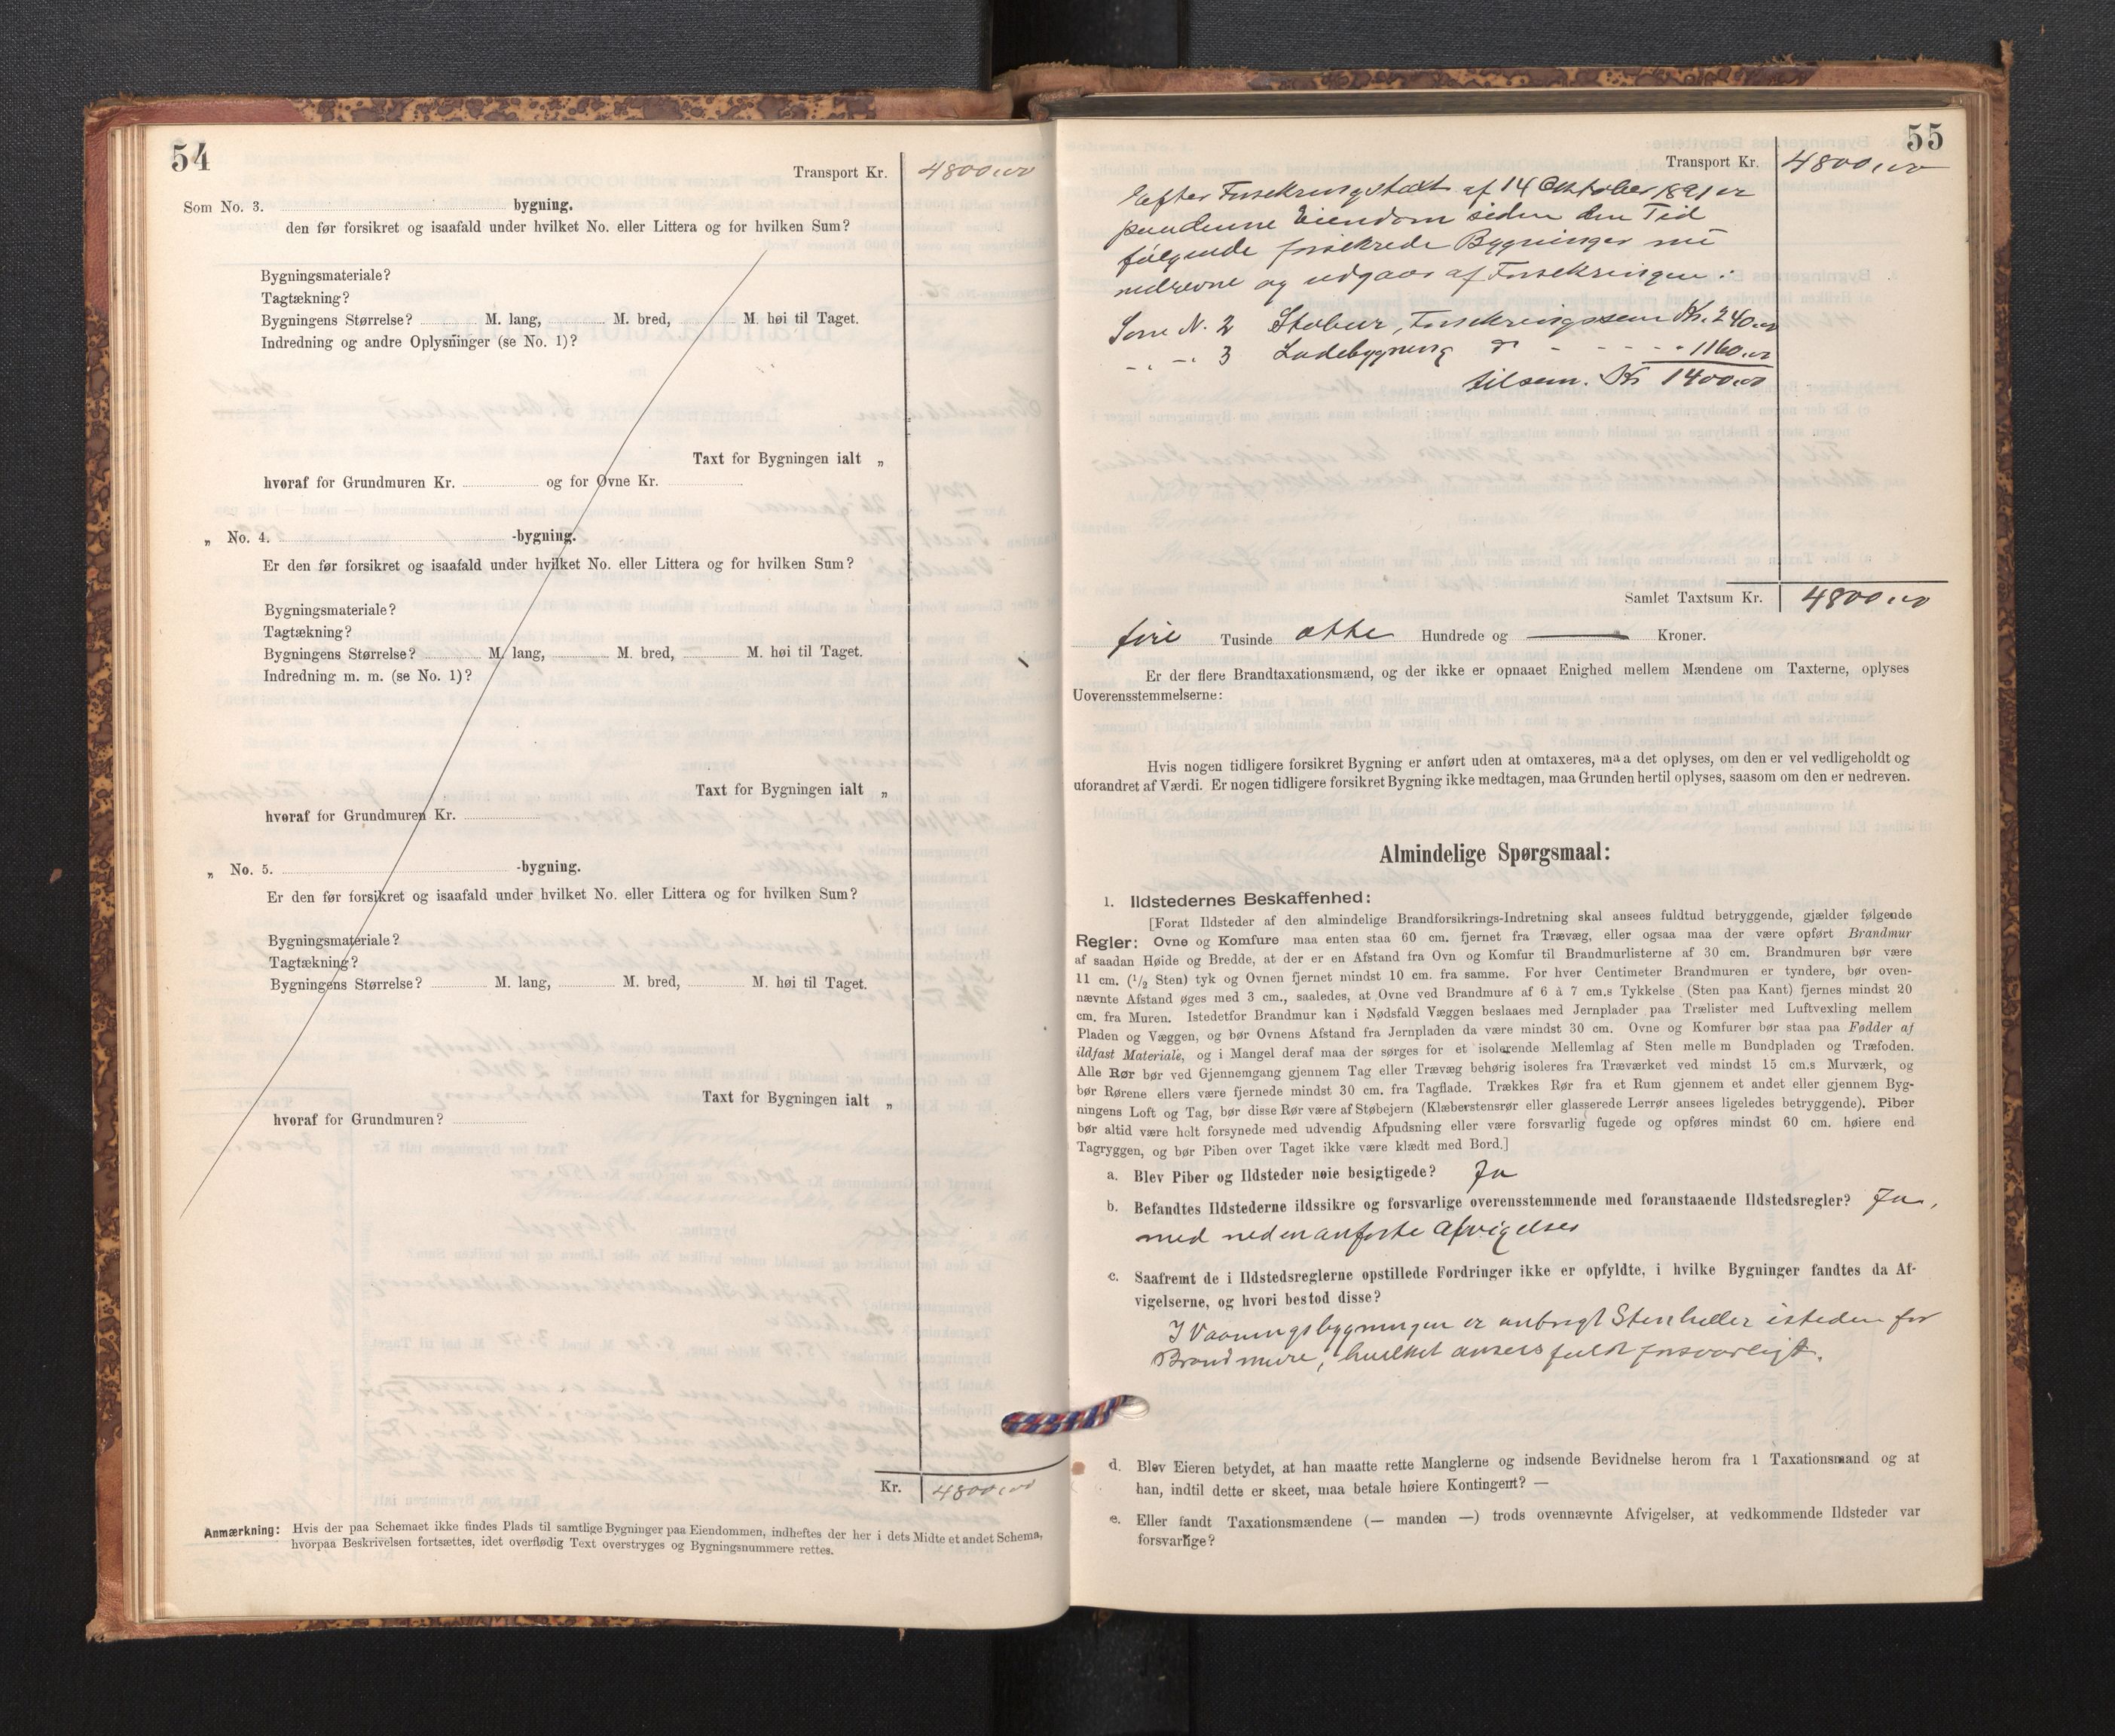 54
Transport Kr. 4800,00
Som No. 3. bygning.
den før forsikret og isaafald under hvilket No. eller Littera og for hvilken Sum?
Bygningsmateriale?
Tagtækning?
Bygningens Størrelse? M. lang, M. bred, M. høi til Taget.
Indredning og andre Oplysninger (se No. 1)?
Taxt for Bygningen ialt „
hvoraf for Grundmuren Kr. og for Øvne Kr.
„ No. 4. -bygning.
Er den før forsikret og isaafald under hvilket No. eller Littera og for hvilken Sum?
Bygningsmateriale?
Tagtækning?
Bygningens Størrelse? M. lang, M. bred, M. høi til Taget.
Indredning m. m. (se No. 1)?
Taxt for Bygningen ialt „
hvoraf for Grundmuren Kr.
„ No. 5. -bygning.
Er den før forsikret og isaafald under hvilket No. eller Littera og for hvilken Sum?
Bygningsmateriale?
Tagtækning?
Bygningens Størrelse? M. lang, M. bred, M. høi til Taget.
Taxt for Bygningen ialt „
hvoraf for Grundmuren?
Kr. 4800,00
Anmærkning: Hvis der paa Schemaet ikke findes Plads til samtlige Bygninger paa Eiendommen, indheftes der her i dets Midte et andet Schema,
hvorpaa Beskrivelsen fortsættes, idet overflødig Text overstryges og Bygningsnummere rettes.
55
Transport Kr. 4800,00
Efter Forsekringstaxt af 14 Oktober 1891 er
paa denne Eiendom siden den Tid
følgende forsekrede Bygninger nu
nedrevne og udgaar af Forsekringen:
Som N. 2 Stabur, Forsekringssum Kr. 240,00
-"- 3 Ladebygning do - - - - 1160,00
tilsam. Kr 1400,00
Samlet Taxtsum Kr. 4800,00
fire Tusinde otte Hundrede og — Kroner.
Er der flere Brandtaxationsmænd, og der ikke er opnaaet Enighed mellem Mændene om Taxterne, oplyses
Uoverensstemmelserne:
Hvis nogen tidligere forsikret Bygning er anført uden at omtaxeres, maa det oplyses, om den er vel vedligeholdt og
uforandret af Værdi. Er nogen tidligere forsikret Bygning ikke medtagen, maa Grunden hertil oplyses, saasom om den er nedreven.
Almindelige Spørgsmaal:
1. Ildstedernes Beskaffenhed:
[Forat Ildsteder af den almindelige Brandforsikrings-Indretning skal ansees fuldtud betryggende, gjælder følgende
Regler: Ovne og Komfure maa enten staa 60 cm. fjernet fra Trævæg, eller ogsaa maa der være opført Brandmur
af saadan Høide og Bredde, at der er en Afstand fra Ovn og Komfur til Brandmurlisterne af 30 cm. Brandmuren bør være
11 cm. (1/2 Sten) tyk og Ovnen fjernet mindst 10 cm. fra samme. For hver Centimeter Brandmuren er tyndere, bør oven-
nævnte Afstand øges med 3 cm., saaledes, at Ovne ved Brandmure af 6 à 7 cm.s Tykkelse (Sten paa Kant) fjernes mindst 20
cm. fra Muren. Istedetfor Brandmur kan i Nødsfald Væggen beslaaes med Jernplader paa Trælister med Luftvexling mellem
Pladen og Væggen, og bør Ovnens Afstand fra Jernpladen da være mindst 30 cm. Ovne og Komfurer bør staa paa Fødder af
ildfast Materiale, og i Mangel deraf maa der sørges for et isolerende Mellemlag af Sten mellem Bundpladen og Træfoden.
Alle Rør bør ved Gjennemgang gjennem Tag eller Trævæg behørig isoleres fra Træværket ved mindst 15 cm.s Murværk, og
bør Rørene ellers være fjernede mindst 30 cm. fra Tagflade. Trækkes Rør fra et Rum gjennem et andet eller gjennem Byg-
ningens Loft og Tag, bør disse Rør være af Støbejern (Klæberstensrør eller glasserede Lerrør ansees ligeledes betryggende). Piber
bør altid være helt forsynede med udvendig Afpudsning eller være forsvarlig fugede og opføres mindst 60 cm. høiere end
Tagryggen, og bør Piben over Taget ikke være klædt med Bord.]
a. Blev Piber og Ildsteder nøie besigtigede? Ja
b. Befandtes Ildstederne ildssikre og forsvarlige overensstemmende med foranstaaende Ildstedsregler? Ja,
med nedenanførte Afvigelser
c. Saafremt de i Ildstedsreglerne opstillede Fordringer ikke er opfyldte, i hvilke Bygninger fandtes da Af-
vigelserne, og hvori bestod disse?
I Vaaningsbygningen er anbragt Stenheller isteden for
Brandmure, hvilket ansees fuldt forsvarligt.
d. Blev Eieren betydet, at han maatte rette Manglerne og indsende Bevidnelse herom fra 1 Taxationsmand og at
han, indtil dette er skeet, maa betale høiere Kontingent? —
e. Eller fandt Taxationsmændene (— manden —) trods ovennævnte Afvigelser, at vedkommende Ildsteder var
forsvarlige?